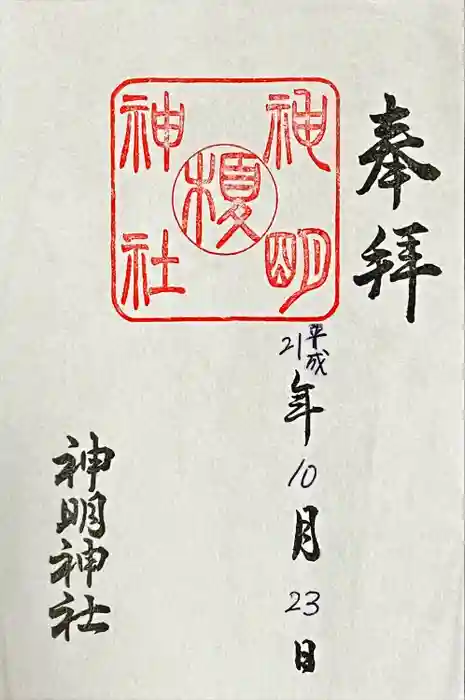 奉拝
神明
榎
神社
平成
21
年10月23日
神明神社